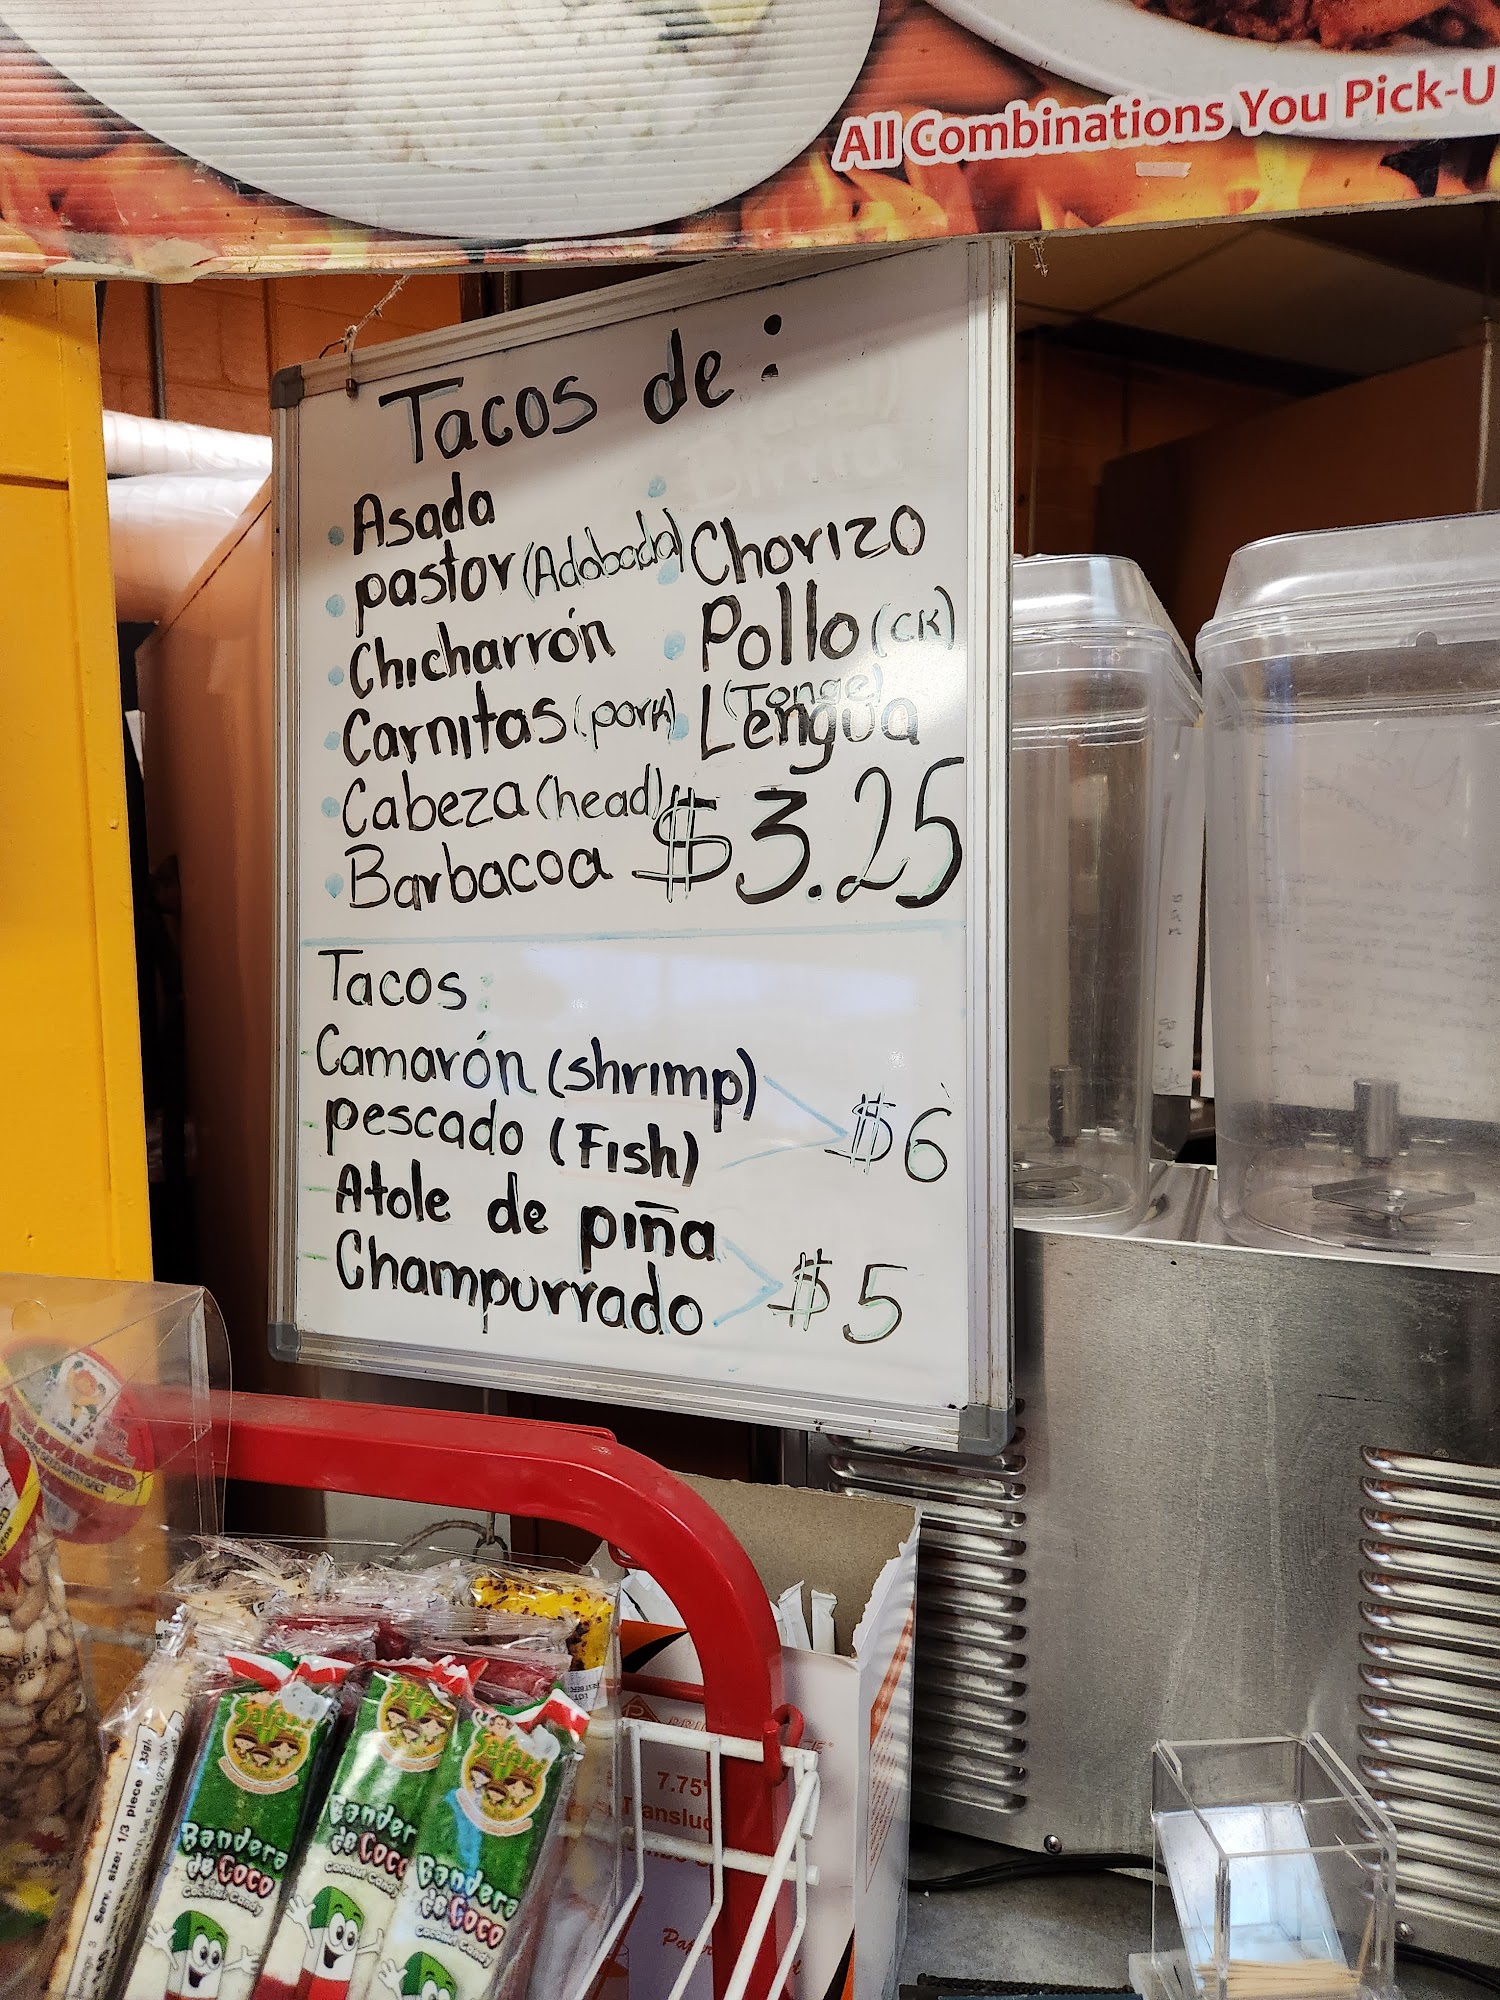 All Combinations You Pick-U
Tacos de:
Asada
pastor (Adobada)
Chicharrón
Carnitas (pork)
Cabeza (head)
Barbacoa
Chorizo
Pollo (CK)
(Tonge)
Lengua
$3.25
Tacos:
Camarón (shrimp)
pescado (Fish)
$6
Atole de piña
Champurrado
$5
Safari
Bandera
de Coco
Coconut Candy
Safari
Bander
de Coco
Coconut Candy
Safari
Bandera
de Coco
Coconut Candy
Serv. size: 1/3 piece (33g)
7.75"
Transluc